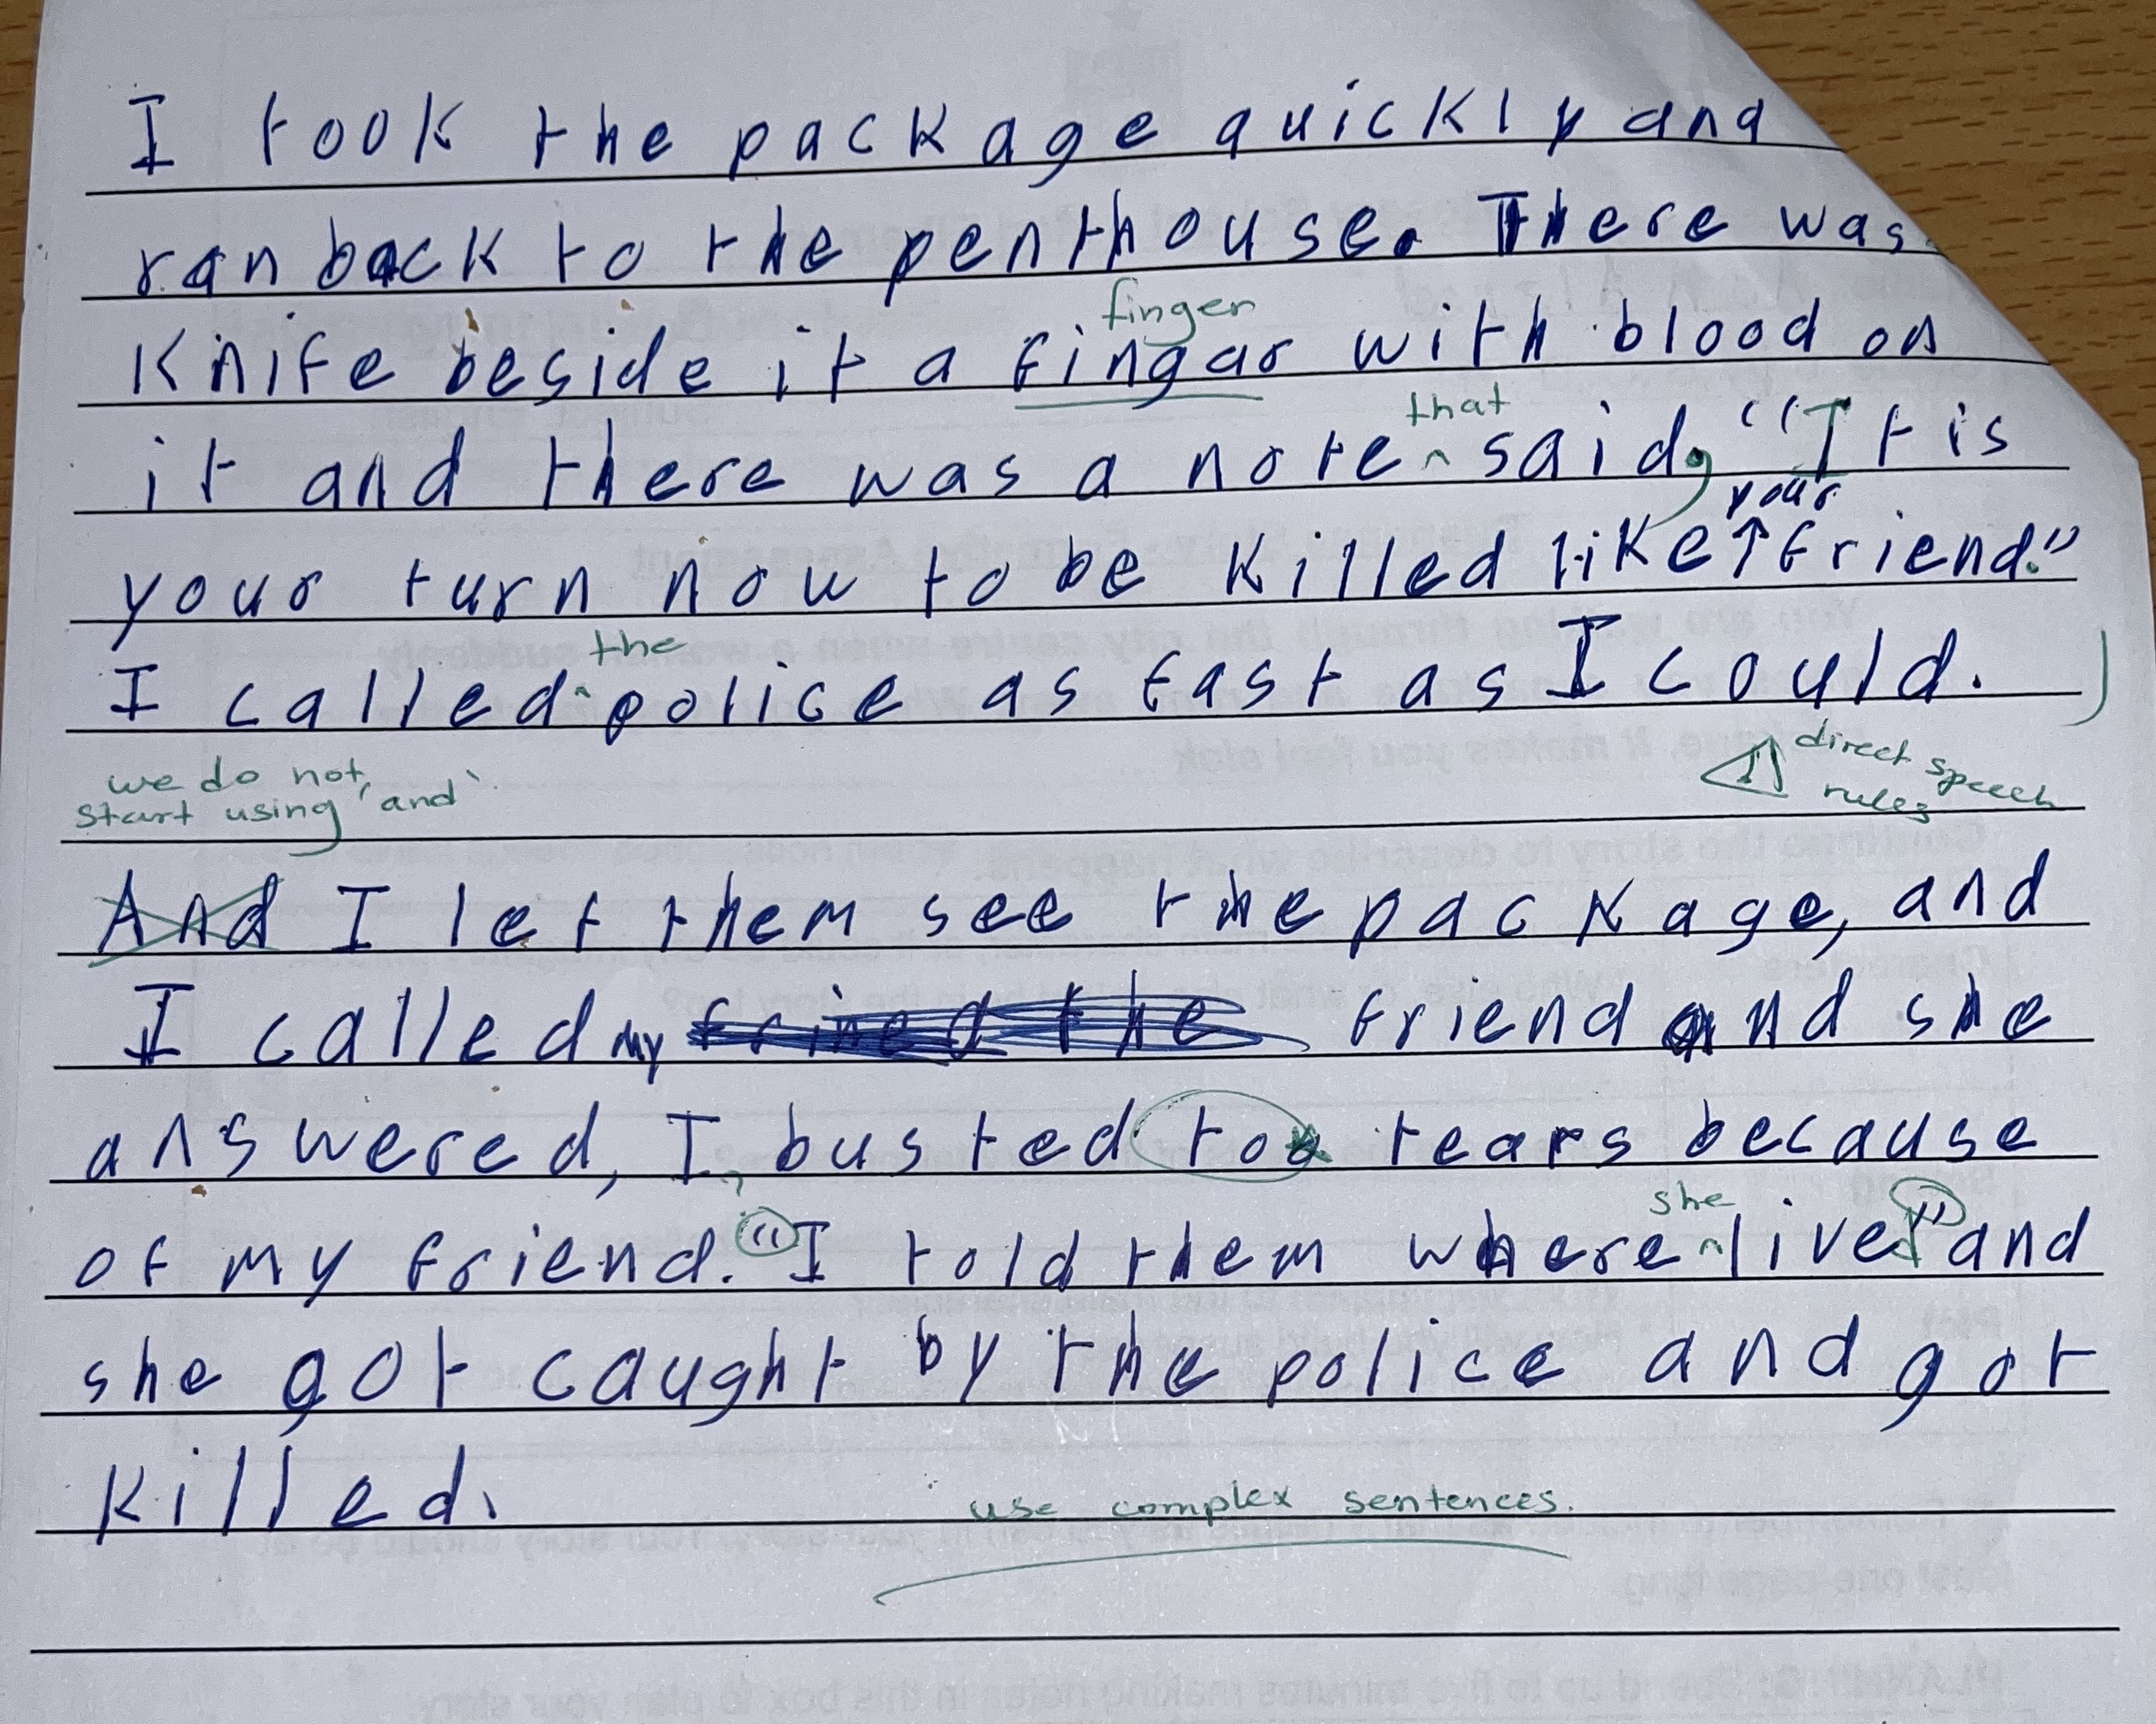 I took the package quickly and
ran back to the penthouse. There was
finger
Knife beside it a fingar with blood on
that
it and there was a note ^ said, "It is
your
your turn now to be killed like ↑ friend."
the
I called ^ police as fast as I could.
direct speech
rules
we do not
start using 'and'
And I let them see the package, and
I called my frined the friend and she
answered, I busted too tears because
of my friend. "I told them where ^ live" and
she
she got caught by the police and got
killed.
use complex sentences.